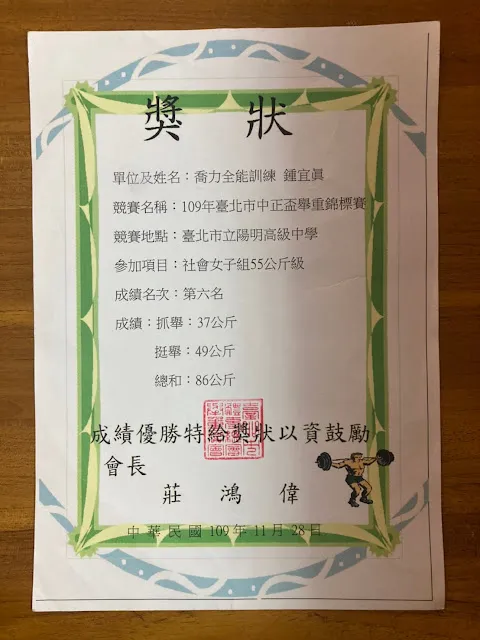 獎狀
單位及姓名：喬力全能訓練 鍾宜眞
競賽名稱：109年臺北市中正盃舉重錦標賽
競賽地點：臺北市立陽明高級中學
參加項目：社會女子組55公斤級
成績名次：第六名
成績：抓舉：37公斤
挺舉：49公斤
總和：86公斤
成績優勝特給獎狀以資鼓勵
會長
莊鴻偉
中華民國109年11月28日